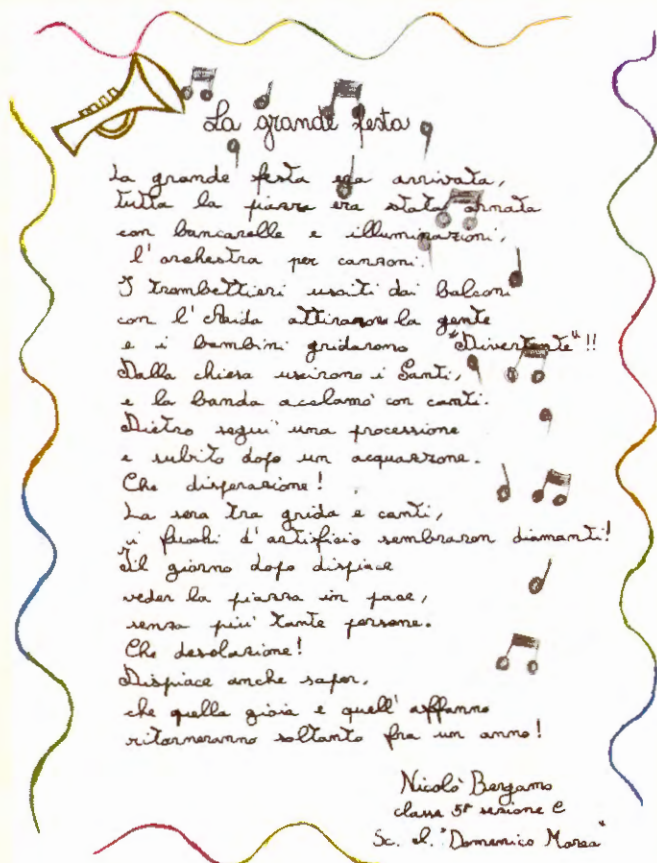 La grande festa
La grande festa era arrivata,
tutta la piazza era stata ornata
con bancarelle e illuminazioni,
l'orchestra per canzoni.
I trombettieri usciti dai balconi
con l'Aida attirarono la gente
e i bambini gridarono "Divertente"!!
Dalla chiesa uscirono i Santi,
e la banda acclamò con canti.
Dietro seguì una processione
e subito dopo un acquazzone.
Che disperazione!
La sera tra grida e canti,
i fuochi d'artificio sembraron diamanti!
Il giorno dopo dispiace
veder la piazza in pace,
senza più tante persone.
Che desolazione!
Dispiace anche saper,
che quella gioia e quell'affanno
ritorneranno soltanto fra un anno!
Nicolò Bergamo
classe 5ª sezione C
Sc. el. "Domenico Morea"